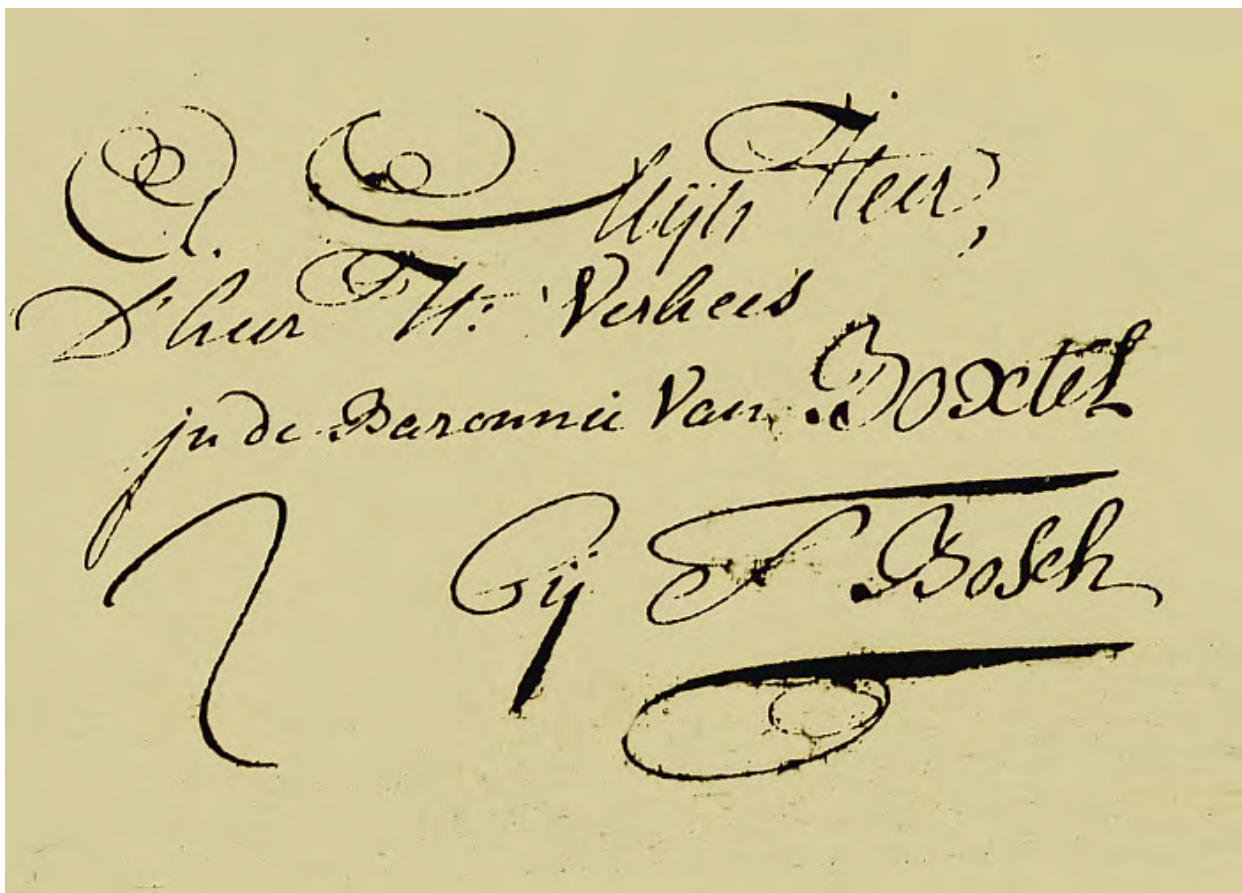 A. Mijn Heer,
D'heer H: Verhees
in de Baronnie Van Boxtel
bij S Bosch